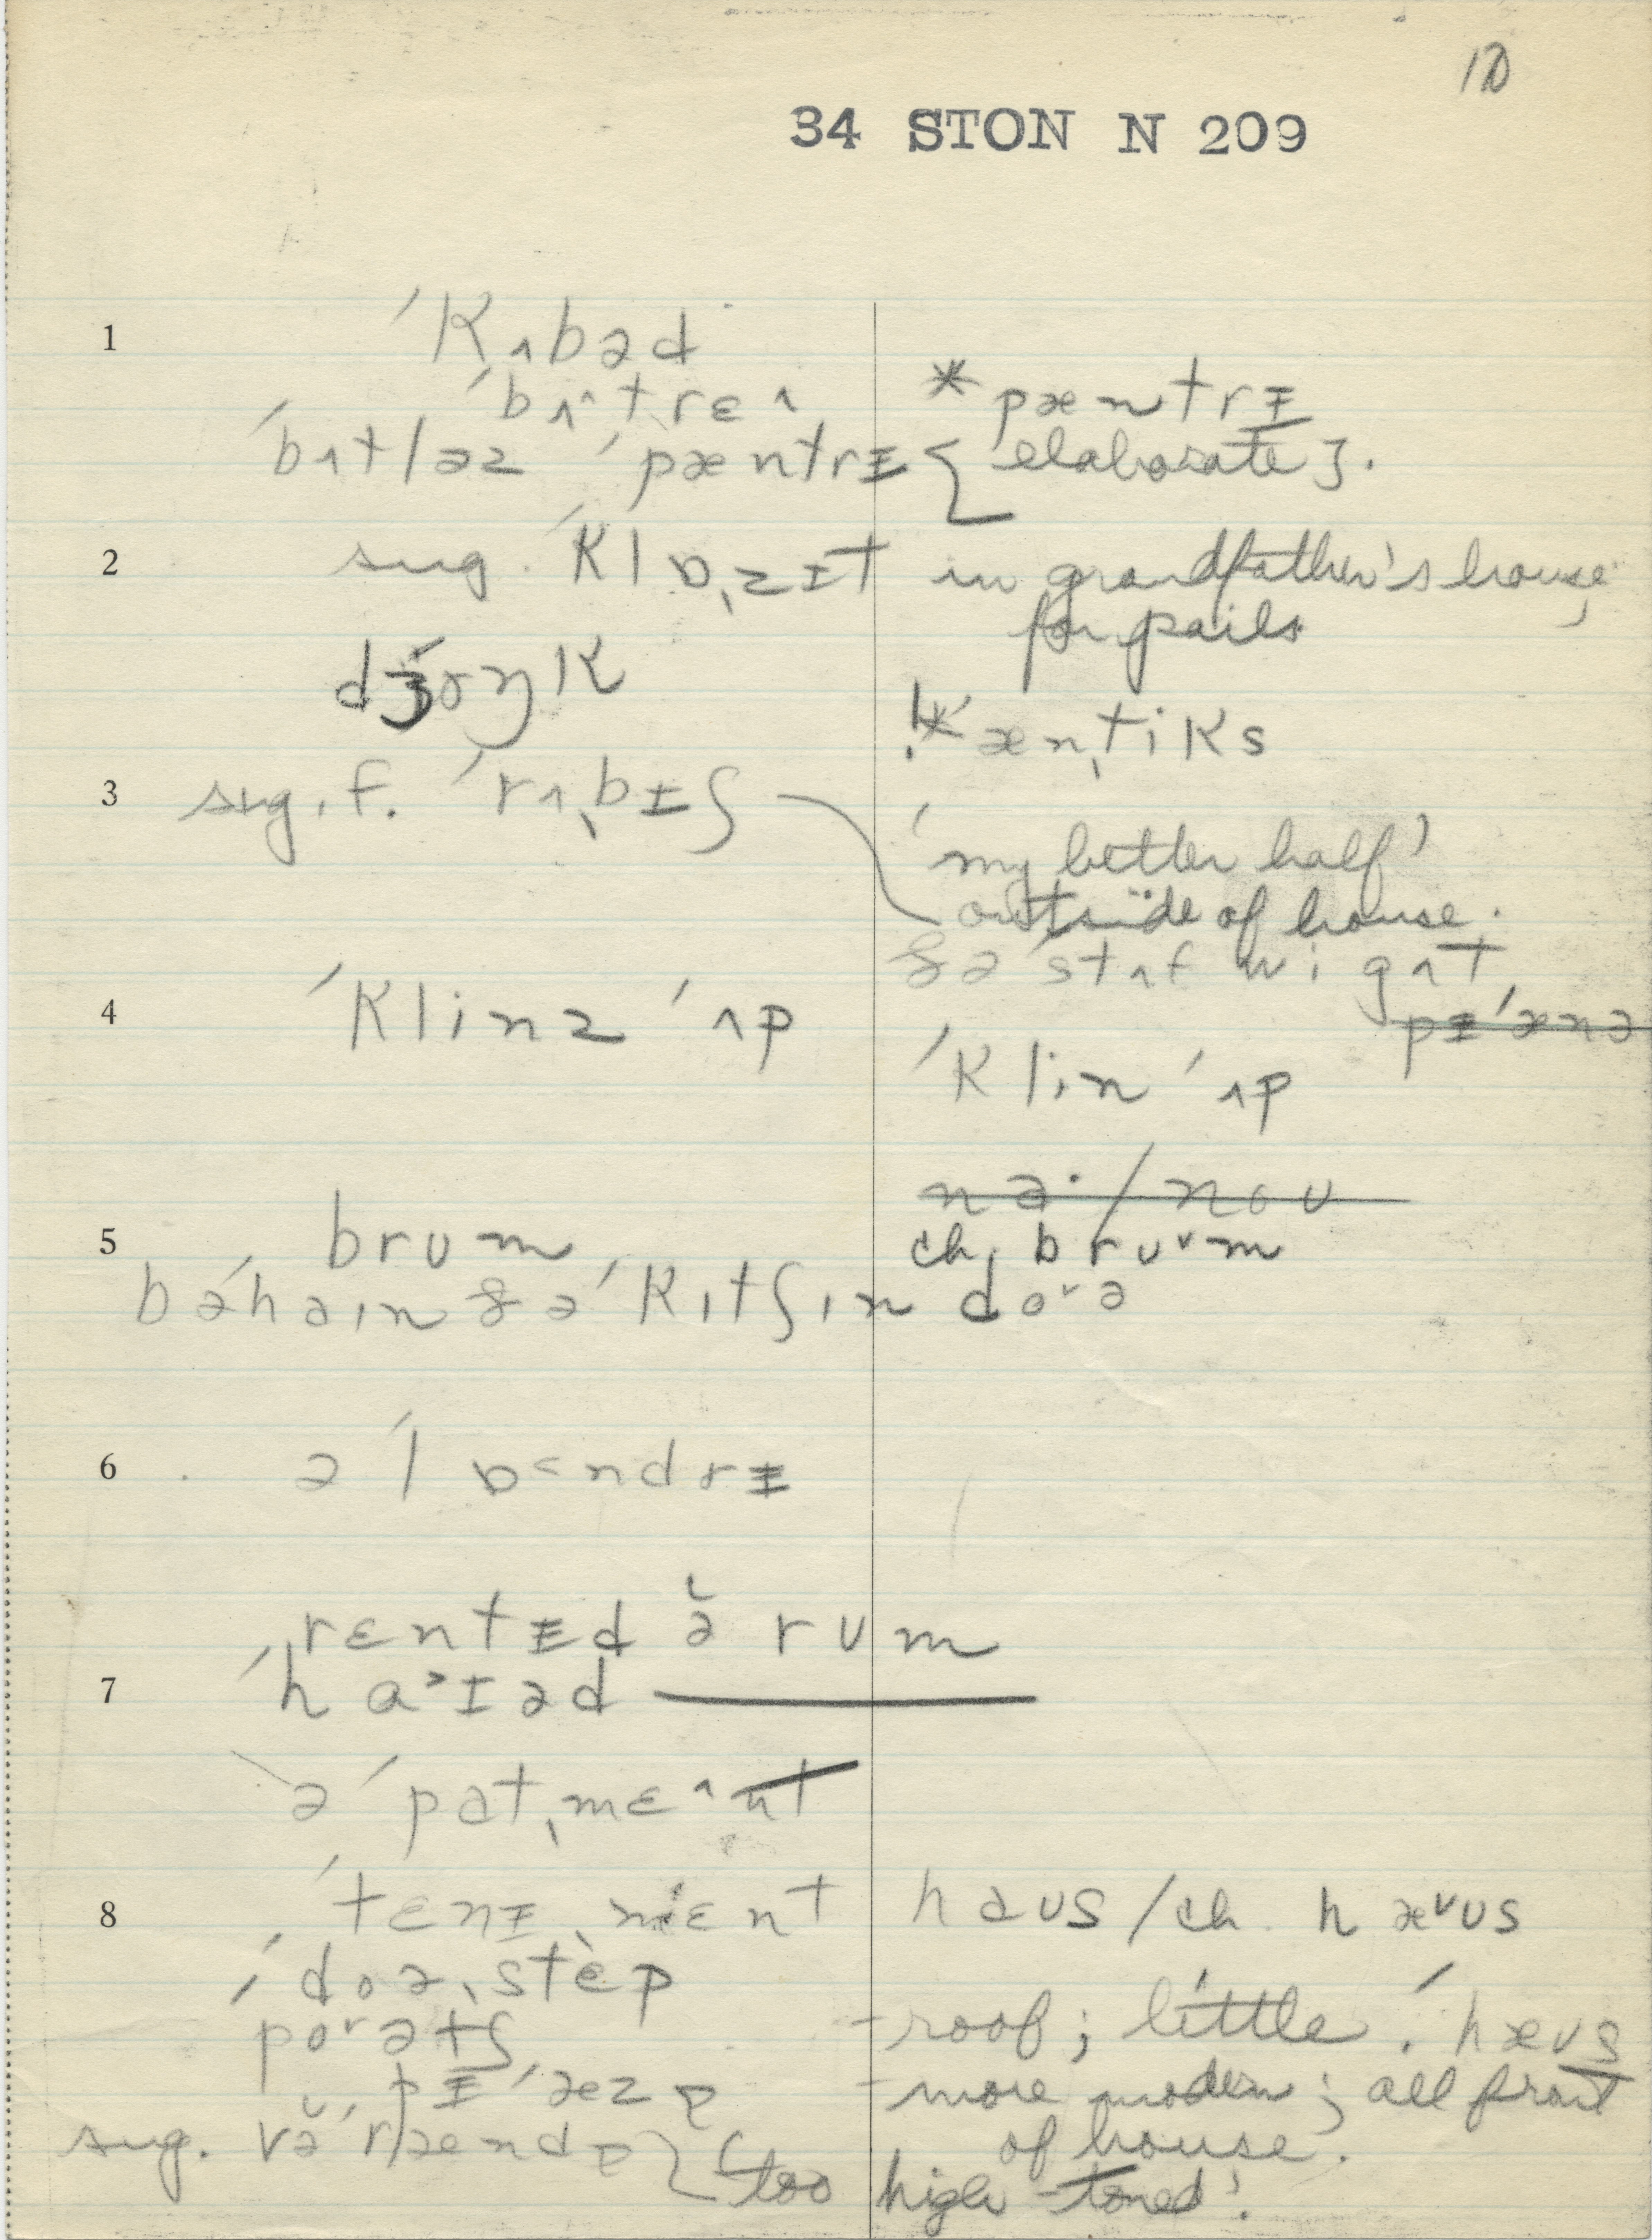 10
34 STON N 209
1 ˈkʌbəd
ˈbʌ^treɛ^ *pæntrɪ
ˈbʌtləz ˈpæntrɪ { elaborate }.
2 sug. ˈklɒˌzɪt in grandfather's house,
for pails
dʒɒŋk
!*ænˌtiks
3 sug. f. ˈrʌˌbɪʃ
'my better half'
outside of house.
ðə stʌf wi gʌt
4 ˈklinz ˈʌp pɪˈænə
ˈklin ˈʌp
nə· / nou
5 brum ch. bruᵛm
bəˈhaɪn ðə ˈkɪtʃɪn doᵛə
6 ə ˈlɒ˂ndrɪ
rɛntɪd ə̆ rum
7 ˈha˃ɪəd ———
ə ˈpatˌmɛ^nt
8 ˈtɛnɪˌmɛnt haus / ch. hæᵛus
ˈdoəˌstɛp
poᵛətʃ - roof; little. ˈhæus
pɪˈæzə - more modern; all front
sug. və̆ˈrændə { 'too of house.
high-toned'.